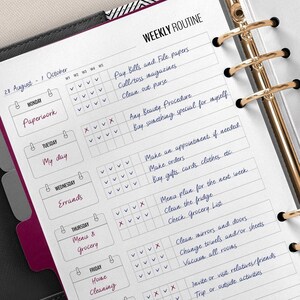 WEEKLY ROUTINE
29 August - 2 October
W1 W2 W3 W4 W5
MONDAY
Paperwork
Pay Bills and File papers
Cull/toss magazines
Clean out purse
TUESDAY
My day
Any Beauty Procedure
Buy something special for myself
WEDNESDAY
Errands
Make an appointment if needed
Make orders
Buy gifts, cards, clothes, etc.
THURSDAY
Menu &
Grocery
Menu plan for the next week
Clean the fridge
Check Grocery List
FRIDAY
Home
Cleaning
Clean mirrors and doors
Change towels and/or sheets
Vacuum all rooms
Invite or visit relatives/friends
or outside activities